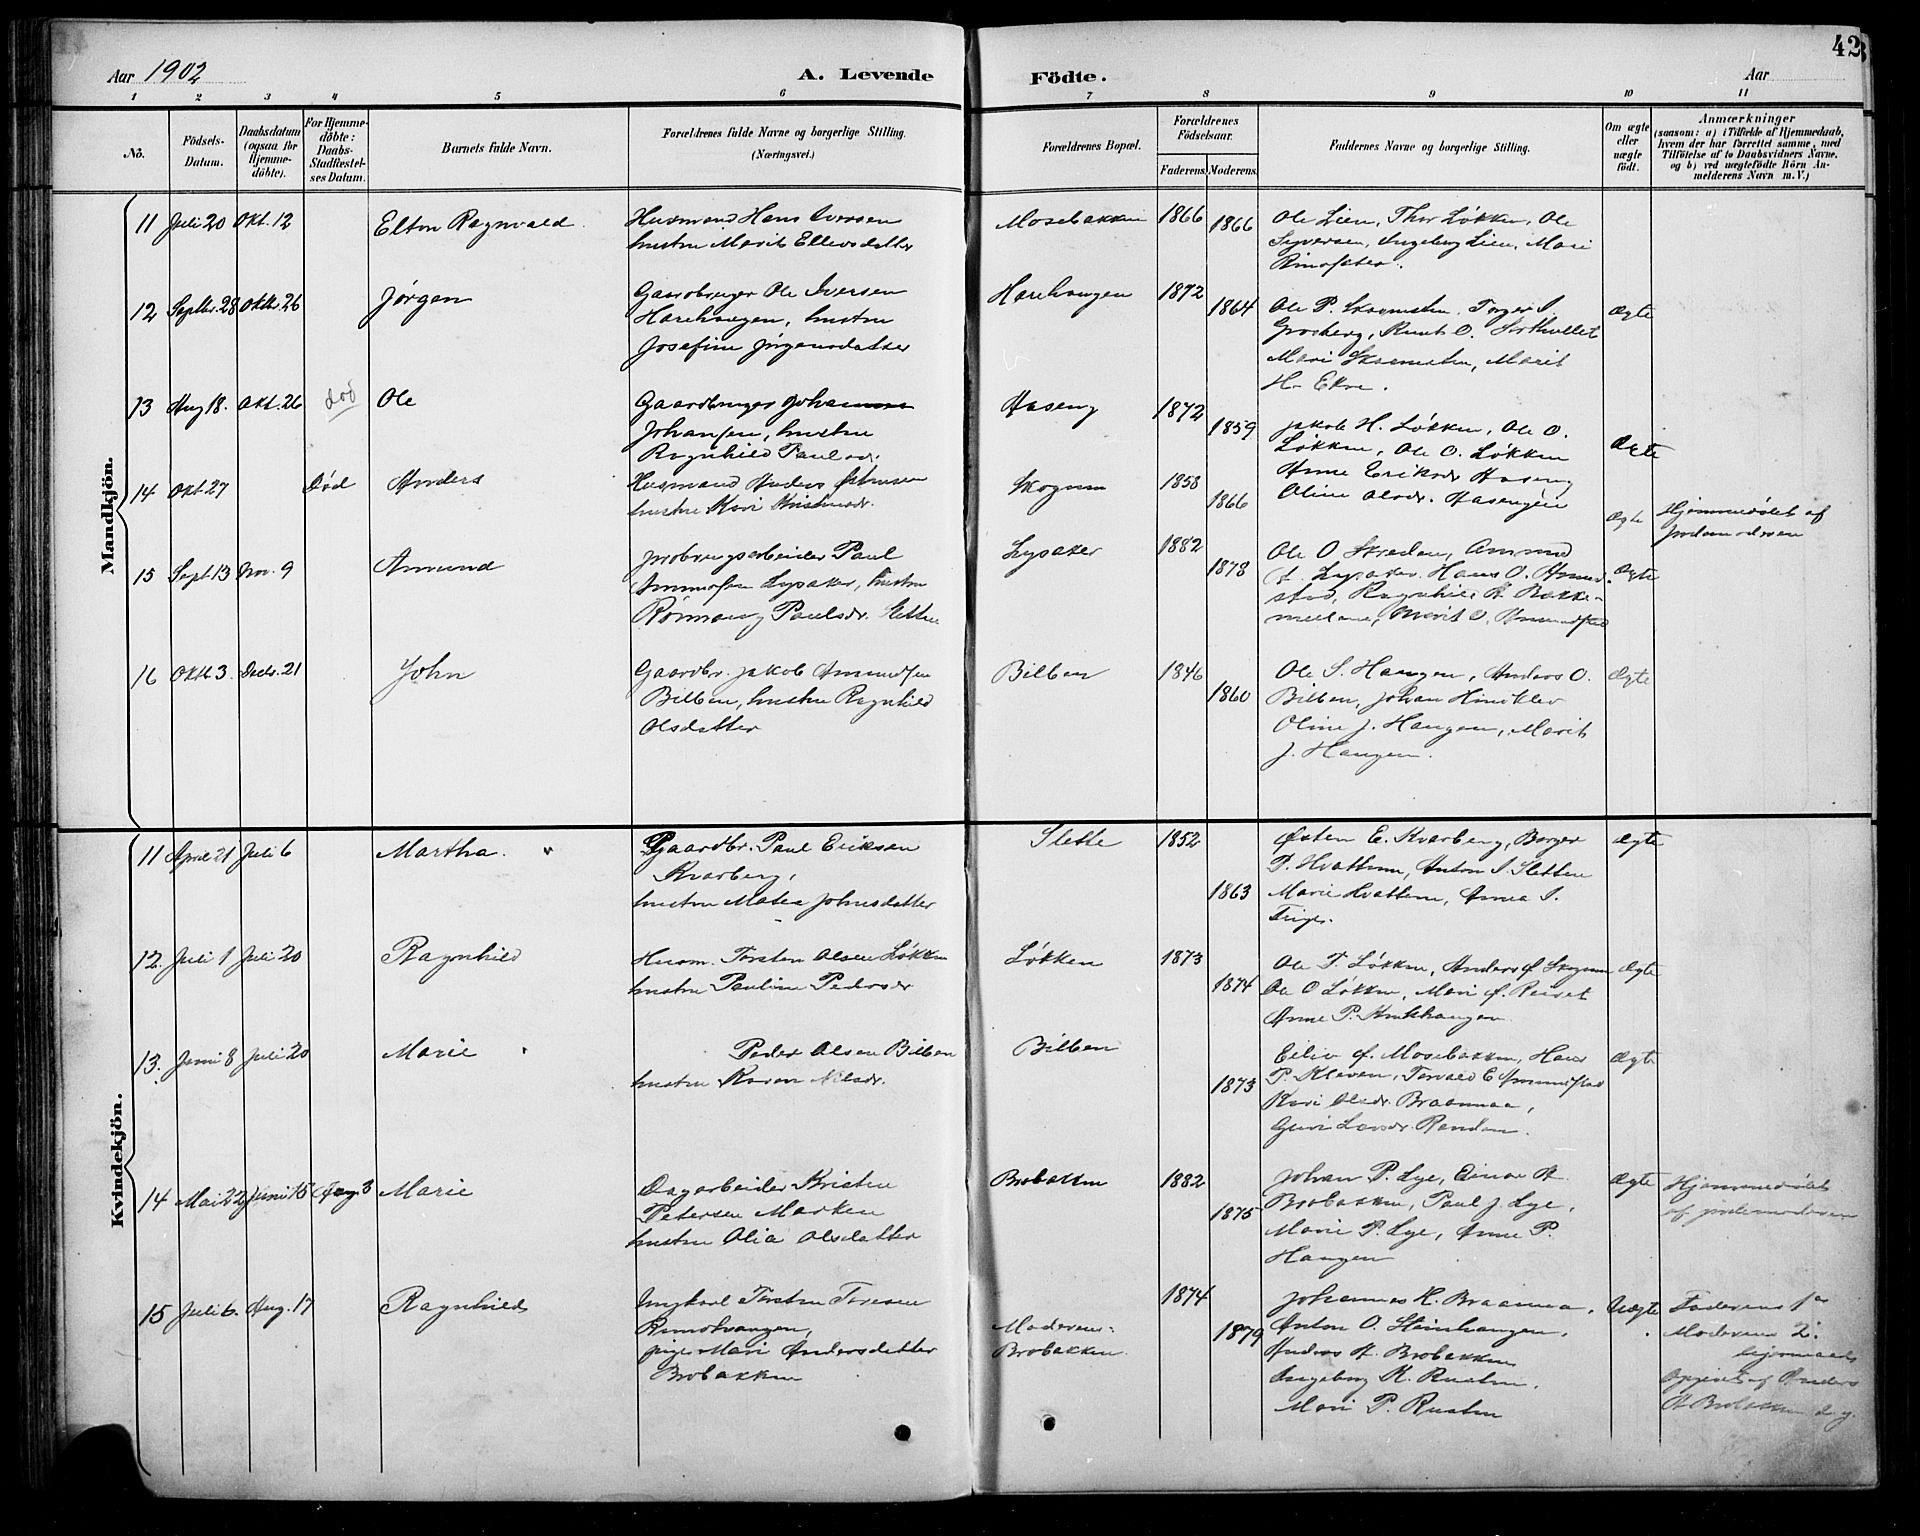 Aar 1902
A. Levende
Födte.
Aar
42
1 2 3 4 5 6 7 8 9 10 11
Nô.
Födsels-Datum.
Daabsdatum (ogsaa for Hjemme-döbte).
For Hjemme-döbte: Daabs-Stadfæstel-ses Datum.
Barnets fulde Navn.
Forældrenes fulde Navne og borgerlige Stilling.
(Næringsvei.)
Forældrenes Bopæl.
Forældrenes Födselsaar.
Faderens. Moderens.
Faddernes Navne og borgerlige Stilling.
Om ægte eller uægte födt.
Anmærkninger
(saasom: a) i Tilfælde af Hjemmedaab, hvem der har forrettet samme, med Tilföielse af to Daabsvidners Navne, og b) ved uægtefödte Börn An-melderens Navn m. V.)
Mandkjön.
11 Juli 20 Okt. 12 Elton Ragnvald
Husmand Hans Iversen
hustru Marit Ellevsdatter
Mosebakken 1866 1866
Ole Lien, Thor Løkken, Ole
Syversen, Ingeborg Lien, Mari
12 Septbr. 28 Oktb. 26 Jørgen
Gaardbruger Ole Iversen
Harehaugen, hustru
Josefine Jørgensdatter
Harehaugen 1872 1864
Ole P.
Knut O.
Mari
Marit
H. Ekre.
Ægte
13 Aug 18. Okt. 26 død Ole
Gaardbruger Johannes
Johansen, hustru
Ragnhild Paulsdr.
Haseng 1872 1859
Jakob H. Løkken, Ole O.
Løkken, Ole O. Løkken
Anne Eriksdr Haseng
Oline Olsdr. Hasengen
Ægte
14 Okt 27 Død Anders
Husmand Anders Østensen
hustru Kari
Skogum 1858 1866
Ægte
Hjemmedøbt af
Jordemoderen
15 Sept 13 Nov. 9 Amund
Jordbrugsarbeider Paul
Amundsen Lysaker, hustru
Rønnaug Paulsdr. Sletten
Lysaker 1882 1878
Ole O. Skreden, Ammund
A. Lysaker, Hans O. Amund-
stad, Ragnhild A. Bække-
mellem, Marit O. Amundstad
Ægte
16 Oktb 3 Decbr. 21 John
Gaardbr. Jakob Amundsen
Bilben, hustru Ragnhild
Olsdatter
Bilben 1846 1860
Ole S. Haugen, Anders O.
Bilben, Johan Hinsklev
Oline J. Haugen, Marit
J. Haugen.
Ægte
Kvindekjön.
11 April 21 Juli 6 Martha.
Gaardbr. Paul Eriksen
Kvarberg,
hustru Matea Johnsdatter
Slette 1852 1863
Østen E. Kvarberg, Borger
P. Hvattum, Anton S. Sletten
Marie Hvattum, Annea S.
Ægte
12. Juli 1 Juli 20 Ragnhild
Husm. Torsten Olsen Løkken
hustru Pauline Pedersdr
Løkken 1873 1874
Ole T. Løkken, Anders J. Skogum
Ole O Løkken, Mari J.
Anne P.
Ægte
13. Juni 8 Juli 20 Marie
Peder Olsen Bilben
hustru Karen Nilsdr.
Bilben 1873
Eiliv J. Mosebakken, Hans
P. Kleven, Torvald E Amundstad
Kari Olsdr. Braannaa,
Guri Larsdr. Randen.
Ægte
14 Mai 22 Juni 15 Aug. 3 Marie
Dagarbeider Kristen
Petersen Marken
hustru Olia Olsdatter
Brobakken 1882 1875
Johan P. Lye, Einar A.
Brobakken, Paul J. Lye,
Marie P. Lye, Anne P.
Haugen
Ægte
Hjemmedøbt
af jordemoderen
15 Juli 6. Aug. 17 Ragnhild
Ungkarl Torsten Toresen
pige Mari Andersdatter
Brobakken
Moderens:
Brobakken. 1874 1879
Johannes K. Braannaa,
Anton O. Steinhaugen,
Anders A. Brobakken
Ingeborg K. Rusten,
Mari P. Rusten
Uægte
Faderens 1ste
Moderens 2.
leiermaal
opgivet af Anders
A Brobakken